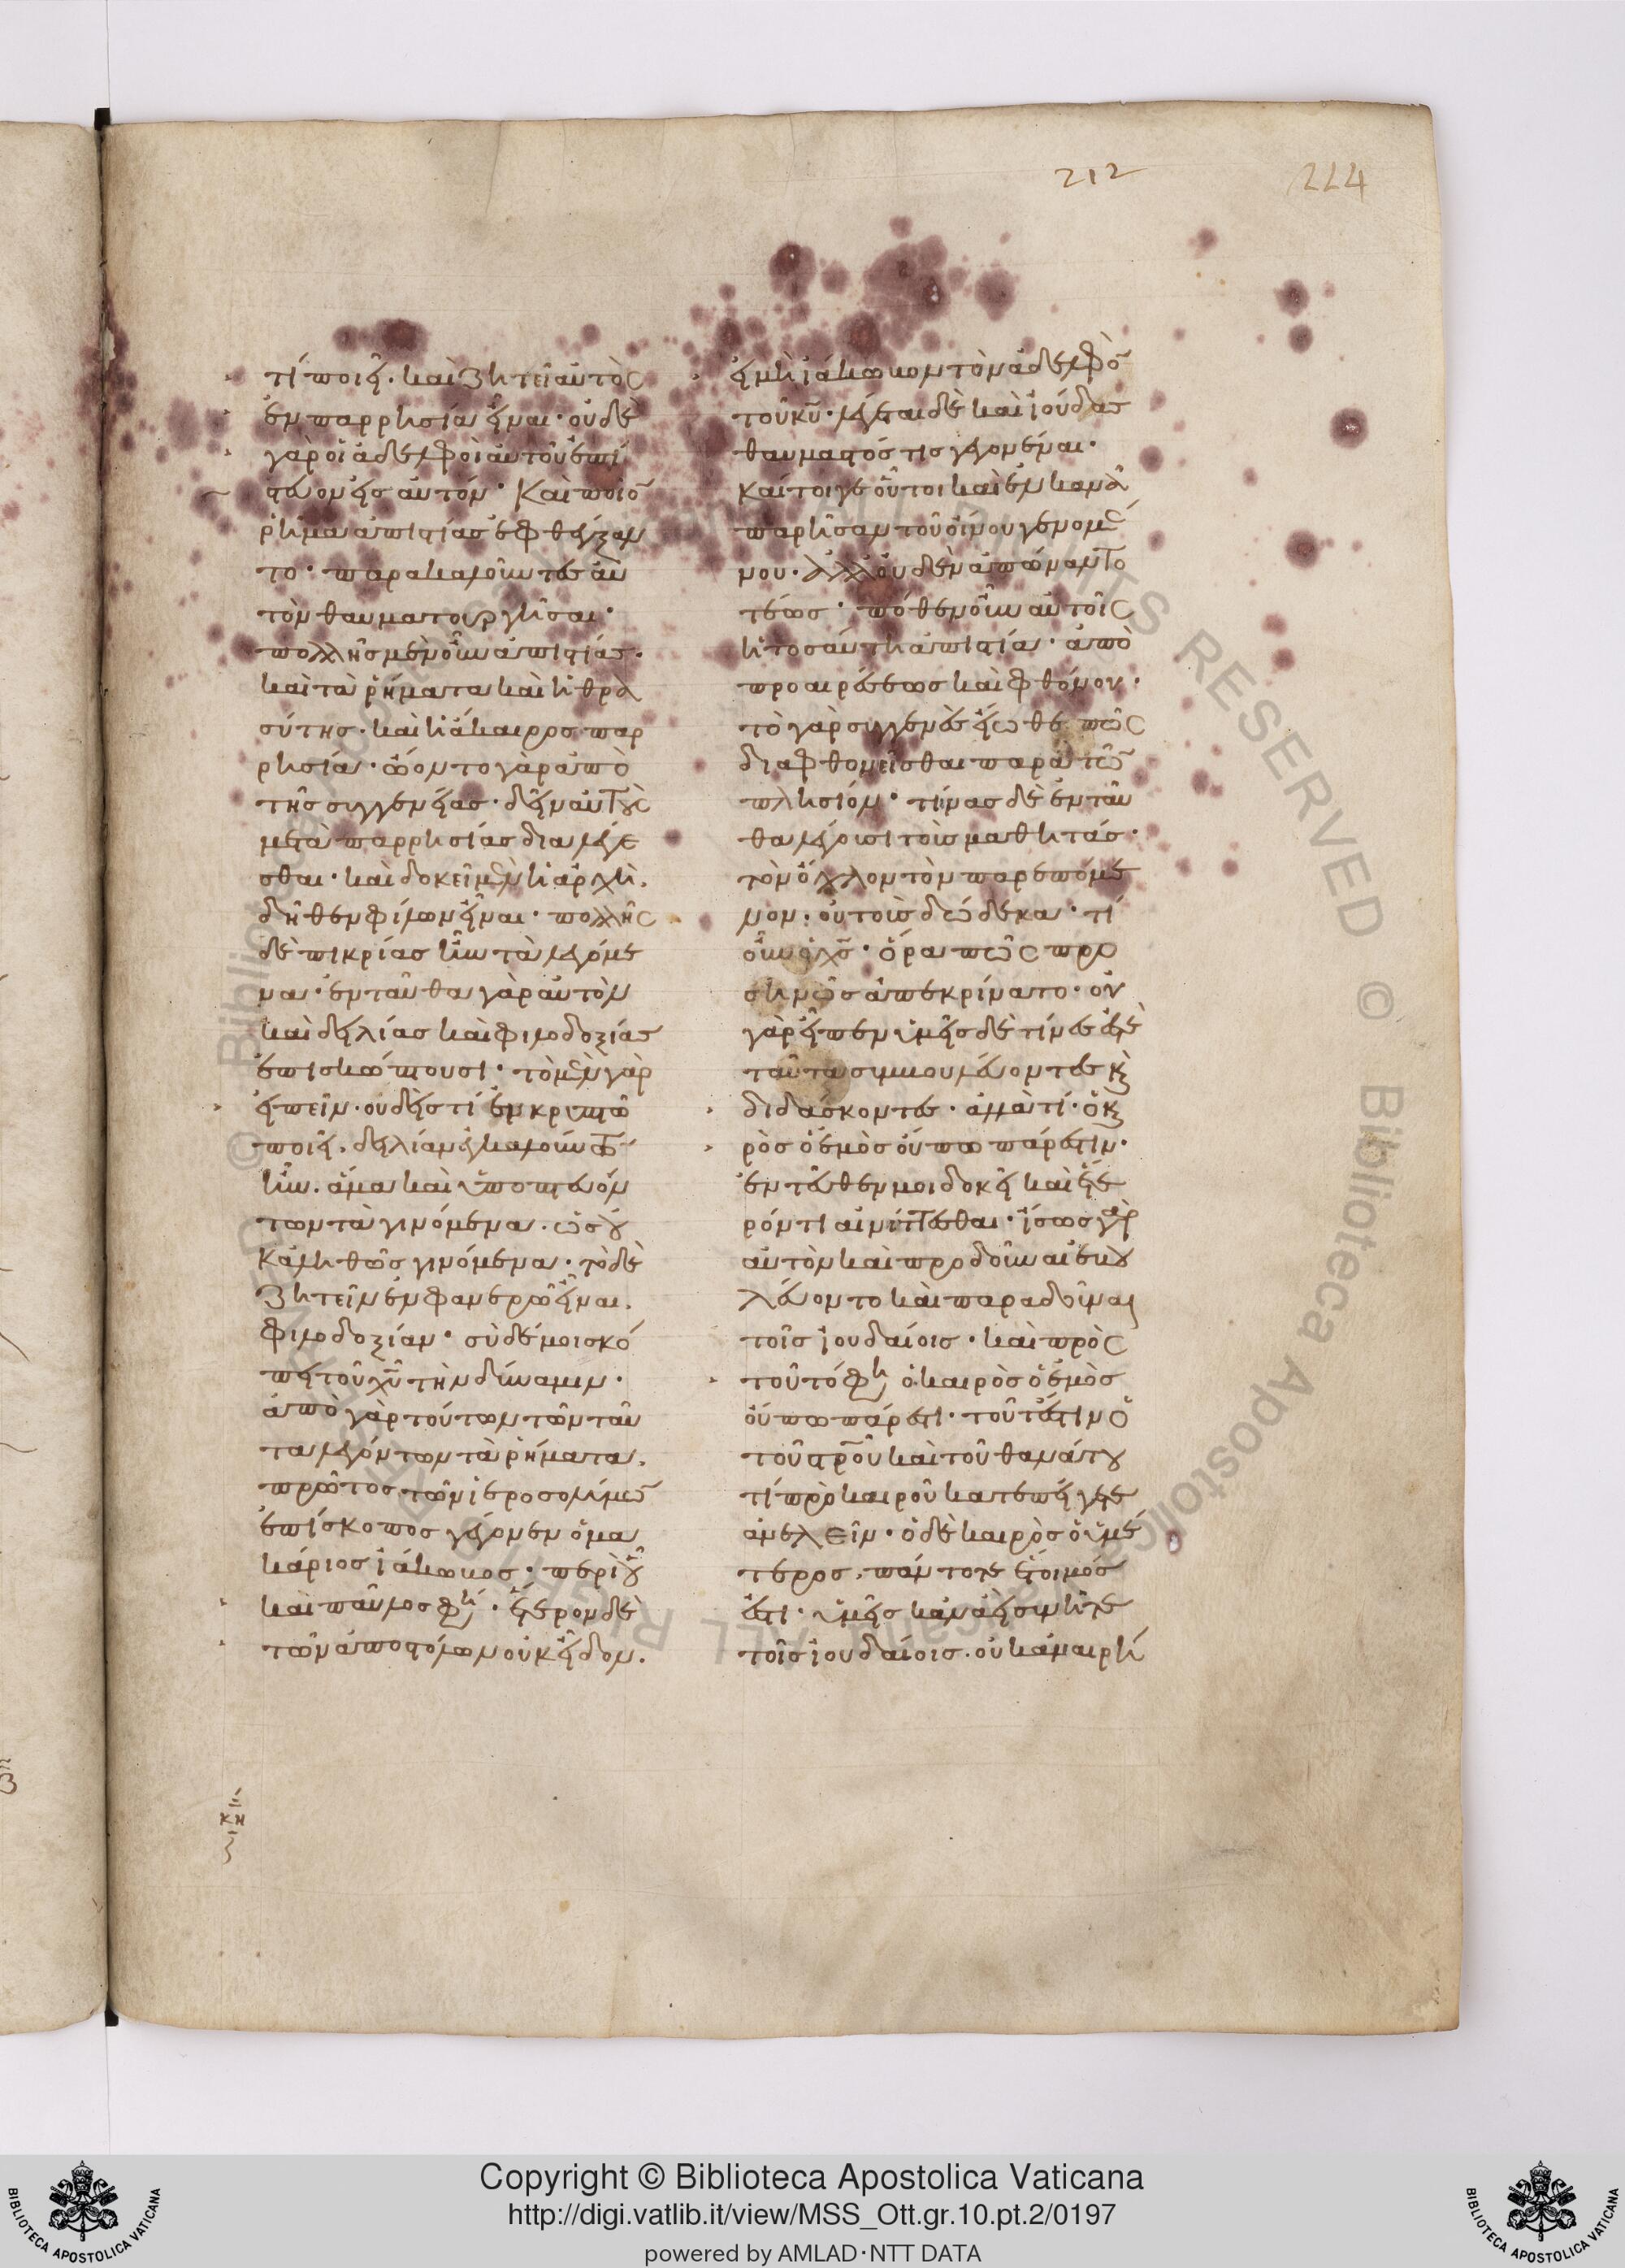 212
224
τί ποιεῖ· καὶ ζητεῖ αὐτὸς
ἐν παρρησία εἶναι· οὐδὲ
γὰρ οἱ ἀδελφοὶ αὐτοῦ ἐπί
στευον εἰς αὐτόν· Καὶ ποῖο̅
ῥῆμα ἀπιστίας ἐφθέγξαν
το· παρακαλοῦντες αὐ
τὸν θαυματουργῆσαι·
πολλῆς μὲν οὖν ἀπιστίας·
καὶ τὰ ῥήματα καὶ ἡ θρα
σύτης· καὶ ἡ ἄκαιρος παρ
ρησία· ὤοντο γὰρ ἀπὸ
τῆς συγγενείας· δεῖν αὐτοὺς
μετὰ παρρησίας διαλέγε
σθαι· καὶ δοκεῖ μὲν ἡ ἀρχὴ.
δῆθεν φίλων εἶναι· πολλῆς
δὲ πικρίας ἦν τὰ λεγόμε
να· ἐνταῦθα γὰρ αὐτὸν
καὶ δειλίας καὶ φιλοδοξίας
ἐπισκώπτουσι· τὸ μὲν γὰρ
εἰπεῖν· οὐδείς τί ἐν κρυπτῶ
ποιεῖ· δειλίαν ἐγκαλούντων
ἦν. ἅμα καὶ ὑποπτευόν
των τὰ γινόμενα. ὡς οὐ
κ ἀληθῶς γινόμενα· τὸ δὲ
ζητεῖν ἐν φανερῶ εἶναι.
φιλοδοξίαν· σὺ δέ μοι σκό
πει τοῦ χ̅υ̅ τὴν δύναμιν·
ἀπὸ γὰρ τούτων τῶν ταῦ
τα λεγόντων τὰ ῥήματα.
πρῶτος τῶν ἱεροσολύμω̅
ἐπίσκοπος γέγονεν ὁ μα
κάριος ἰάκωβος· περὶ οὗ
καὶ παῦλος φη· ἕτερον δὲ
τῶν ἀποστόλων οὐκ εἶδον.
κη
εἰ μὴ ἰάκωβον τὸν ἀδελφὸ̅
τοῦ κ̅υ̅· λέγεται δὲ καὶ ἰούδας
θαυμαστός τις γεγονέναι·
καίτοιγε οὗτοι καὶ ἐν κανᾶ
παρῆσαν τοῦ οἴνου γενομέ
νου· ἀλλ' οὐδὲν ἀπώναντο
τέως· πόθεν οὖν αὐτοῖς
ἡ τοσαύτη ἀπιστία· ἀπὸ
προαιρέσεως καὶ φθόνου·
τὸ γὰρ συγγενὲς εἴωθέ πως
διαφθονεῖσθαι παρὰ τῶ̅
πλησίον· τίνας δὲ ἐνταῦ
θα λέγουσι τοὺς μαθητάς·
τὸν ὄχλον τὸν παρεπόμε
νον· οὐ τοὺς δώδεκα· τί
οὖν ὁ χ̅ς̅· ὅρα πῶς προ
σηνῶς ἀπεκρίνατο· οὐ
γὰρ εἶπεν ὑμεῖς δὲ τίνες ἐστὲ
ταῦτα συμβουλεύοντες κ̀
διδάσκοντες· ἀλλὰ τί· ὁ κ̀
ρὸς ὁ ἐμὸς οὔπω πάρεστιν·
ἐντεῦθέν μοι δοκεῖ καὶ ἕτε
ρόν τι αἰνίττεσθαι· ἴσως γὰρ
αὐτὸν καὶ προδοῦναι ἐβου
λεύοντο καὶ παραδοῦναι
τοῖς ἰουδαίοις· καὶ πρὸς
τοῦτό φη ὁ καιρὸς ὁ ἐμὸς
οὔπω πάρεστι· τοῦτέστιν ὁ
τοῦ στ̅ρο̅υ καὶ τοῦ θανάτου
τί πρὸ καιροῦ κατεπείγετε
ἀνελεῖν· ὁ δὲ καιρὸς ὁ ὑμέ
τερος, πάντοτε ἕτοιμός
ἐστι· ὑμεῖς κἂν ἀεὶ συνῆτε
τοῖς ἰουδαίοις· οὐκ ἀναιρή
Copyright © Biblioteca Apostolica Vaticana
http://digi.vatlib.it/view/MSS_Ott.gr.10.pt.2/0197
powered by AMLAD·NTT DATA
BIBLIOTECA APOSTOLICA VATICANA
BIBLIOTECA APOSTOLICA VATICANA